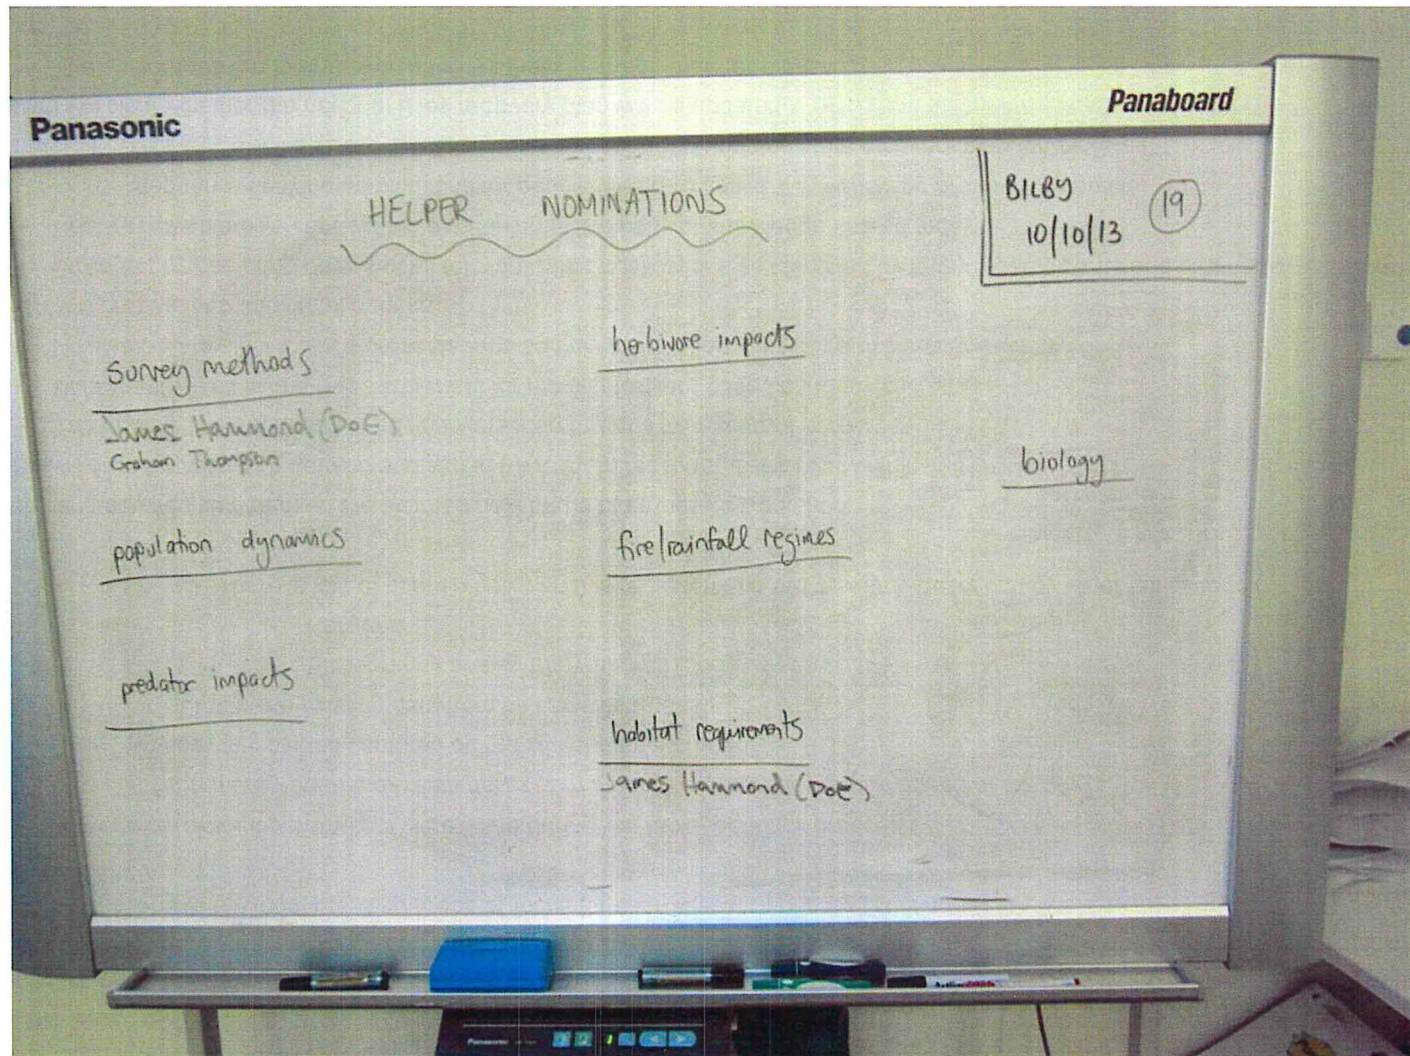 Panasonic
Panaboard
HELPER NOMINATIONS
BILBY
10/10/13
19
Survey methods
James Hammond (DoE)
Graham Thompson
population dynamics
predator impacts
herbivore impacts
fire/rainfall regimes
habitat requirements
James Hammond (DoE)
biology
Panasonic